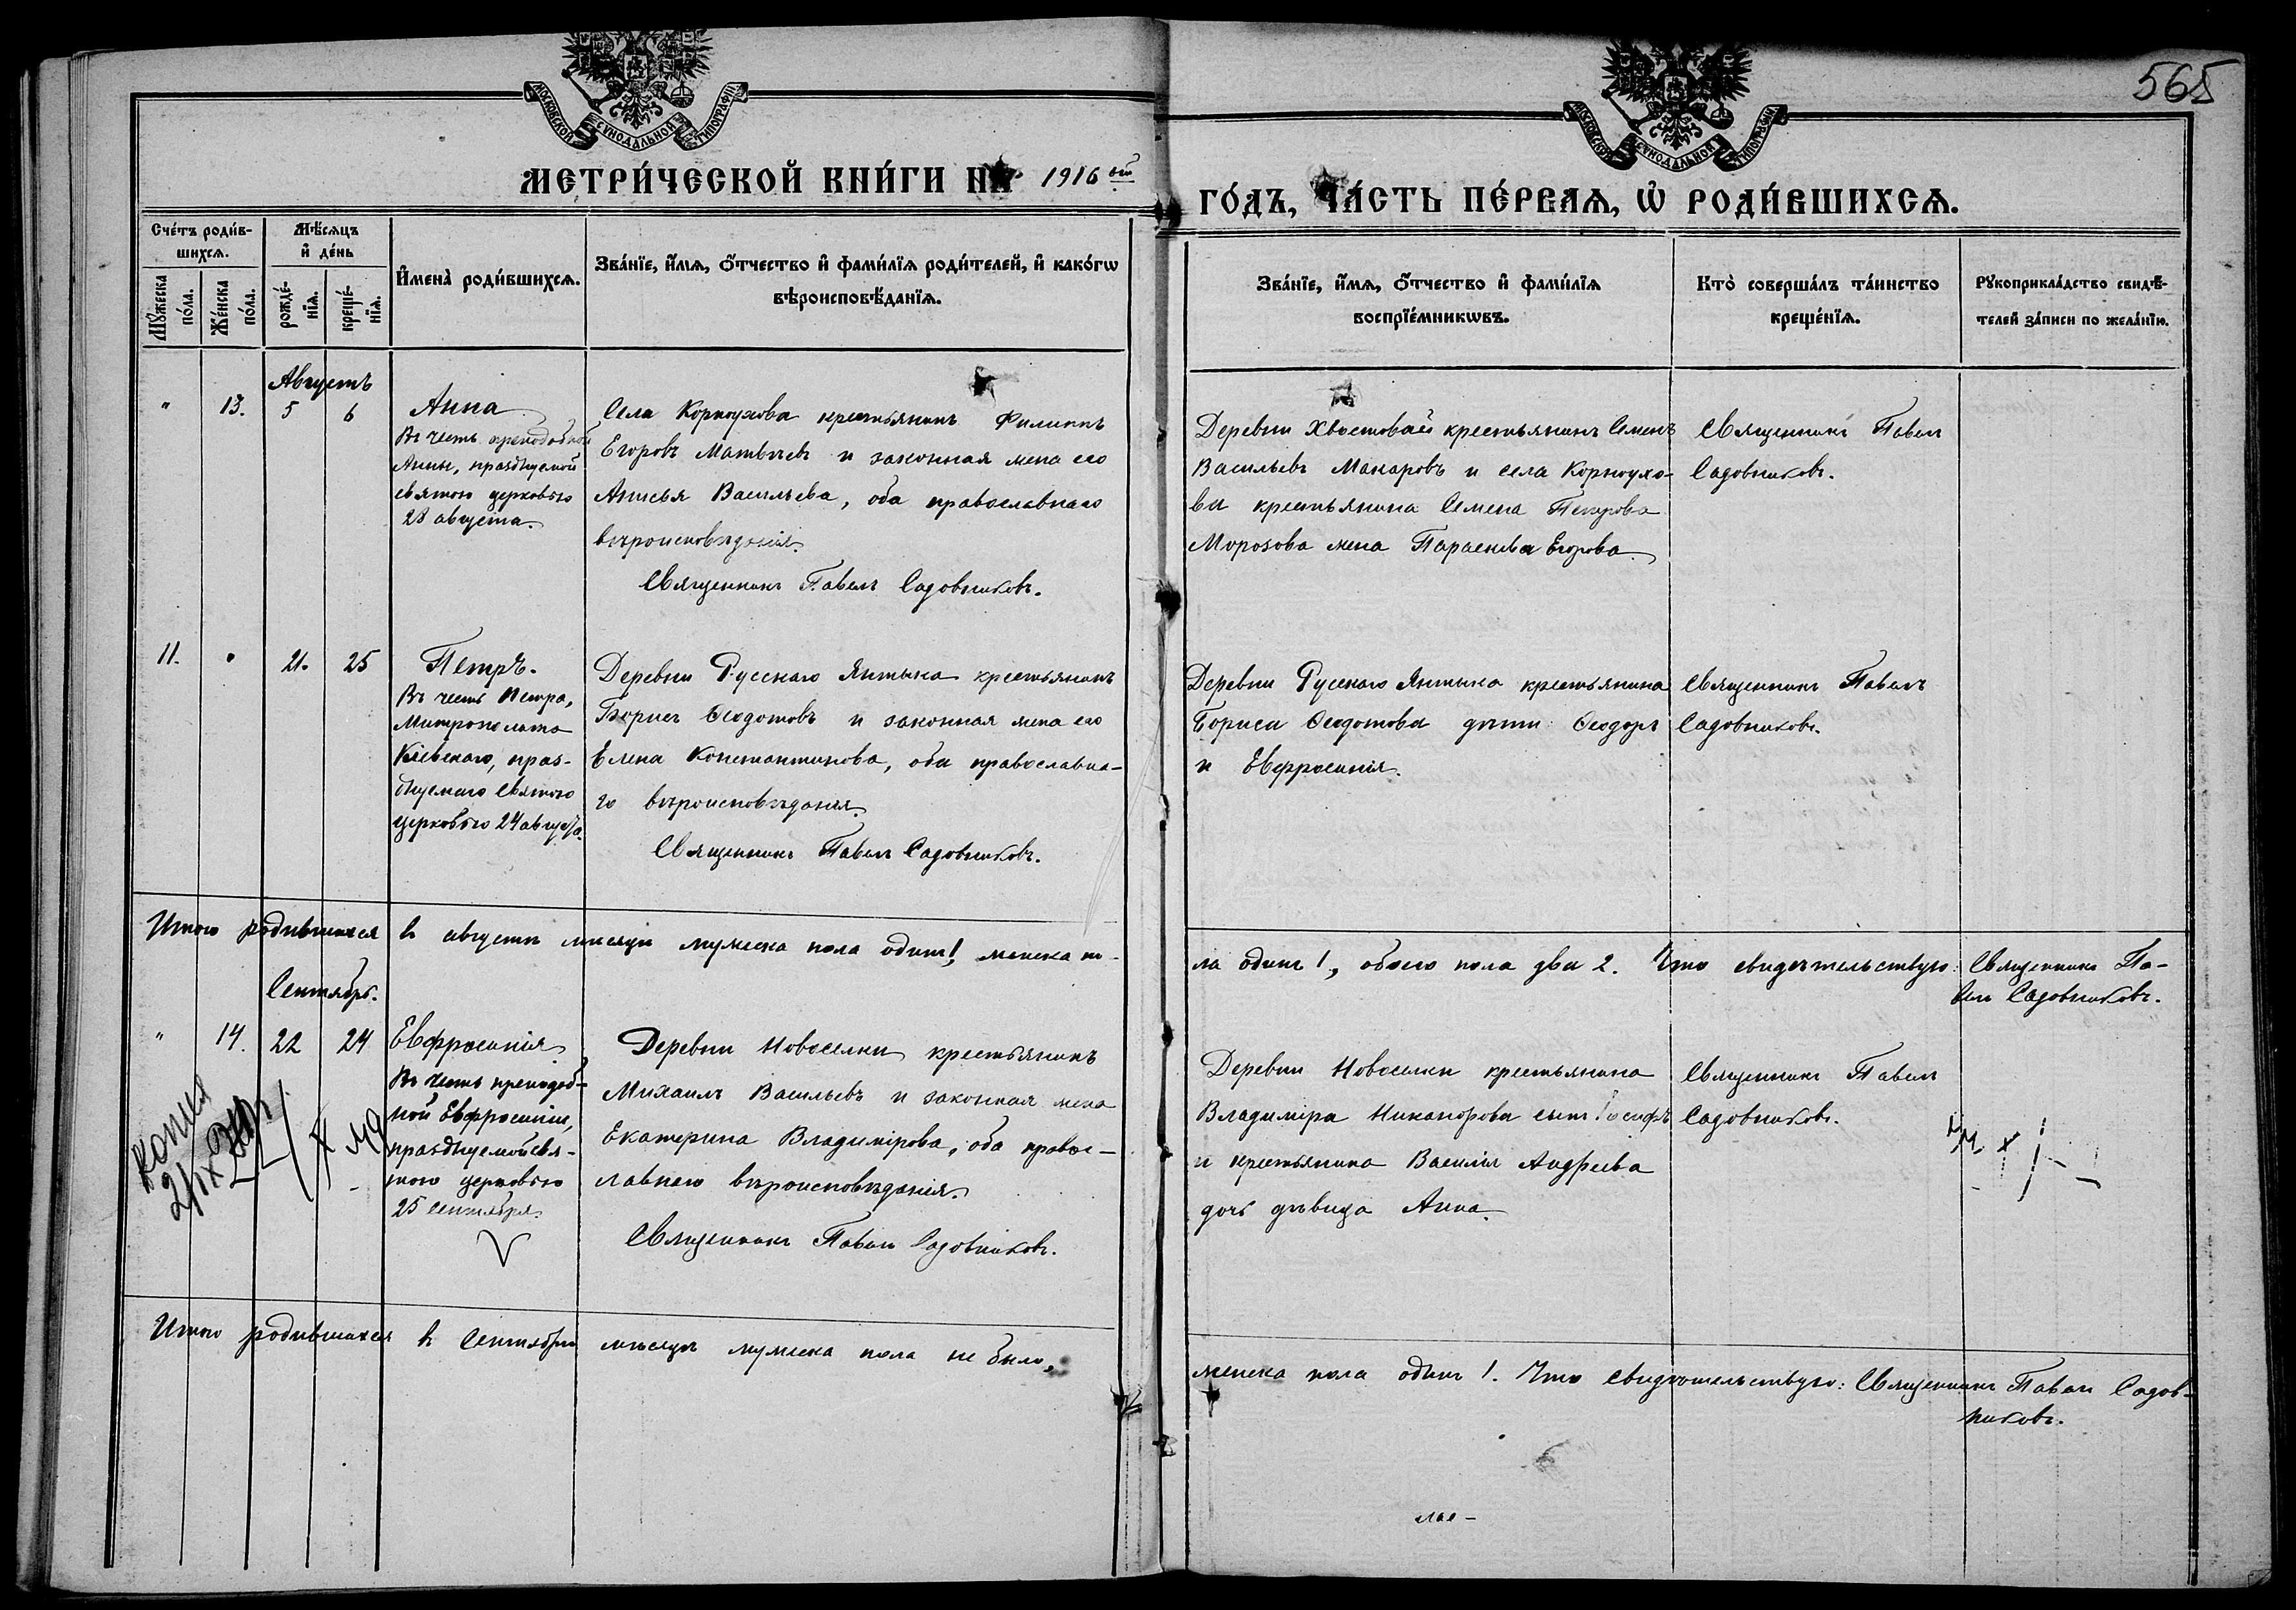 565
МОСКОВСКОЙ СѴНОДАЛЬНОЙ ТИПОГРАФІИ
МОСКОВСКОЙ СѴНОДАЛЬНОЙ ТИПОГРАФІИ
МЕТРИ́ЧЕСКОЙ КНИ́ГИ НА 1916 ый
ГО́ДЪ, ЧА́СТЬ ПЕ́РВАѦ, Ѡ҆ РОДИ́ВШИХСѦ.
Сче́тъ роди́в-
шихсѧ.
Мꙋ́жеска
по́ла.
Же́нска
по́ла.
Мѣ́сѧцъ
и҆ де́нь
рожде́-
нїѧ.
креще́-
нїѧ.
И҆мена̀ роди́вшихсѧ.
Зва́нїе, и҆́мѧ, ѻ҆́тчество и҆ фами́лїѧ роди́телей, и҆ како́гѡ
вѣроисповѣ́данїѧ.
Зва́нїе, и҆́мѧ, ѻ҆́тчество и҆ фами́лїѧ
воспрїе́мникѡвъ.
Кто̀ соверша́лъ та́инство
креще́нїѧ.
Рꙋкоприкла́дство свидѣ́-
телей за́писи по жела́нїю.
Августъ
" 13. 5 6
Анна
Въ честь преподобной
Анны, празднуемой
святою церковью
28 августа.
Села Корноухова крестьянинъ Филиппъ
Егоровъ Матвѣевъ и законная жена его
Анисья Васильева, оба православнаго
вѣроисповѣданія.
Священникъ Павелъ Садовниковъ.
Деревни Хвостовой крестьянинъ Семенъ
Васильевъ Макаровъ и села Корноухо-
ва крестьянина Семена Петрова
Морозова жена Параскева Егорова.
Священникъ Павелъ
Садовниковъ.
11. " 21. 25
Петръ.
Въ честь Петра,
Митрополита
Кіевскаго, праз-
днуемаго святою
церковью 24 августа.
Деревни Русскаго Янтыка крестьянинъ
Борисъ Ѳеодотовъ и законная жена его
Елена Константинова, оба православна-
го вѣроисповѣданія.
Священникъ Павелъ Садовниковъ.
Деревни Русскаго Янтыка крестьянина
Бориса Ѳеодотова дѣти: Ѳеодоръ
и Евфросинія.
Священникъ Павелъ
Садовниковъ.
Итого родившихся въ августѣ мѣсяцѣ мужеска пола одинъ 1, женска по-
ла одинъ 1, обоего пола два 2. Что свидѣтельствую: Священникъ Па-
велъ Садовниковъ.
Сентябрь.
" 14. 22 24
Евфросинія
Въ честь преподоб-
ной Евфросиніи,
празднуемой свя-
тою церковью
25 сентября.
Деревни Новоселки крестьянинъ
Михаилъ Васильевъ и законная жена
Екатерина Владимірова, оба правос-
лавнаго вѣроисповѣданія.
Священникъ Павелъ Садовниковъ.
Деревни Новоселки крестьянина
Владиміра Никанорова сынъ Іосифъ
и крестьянина Василія Андреева
дочь дѣвица Анна.
Священникъ Павелъ
Садовниковъ.
копия
Итого родившихся въ Сентябрѣ мѣсяцѣ мужеска пола не было,
женска пола одинъ 1. Что свидѣтельствую: Священникъ Павелъ Садов-
никовъ.